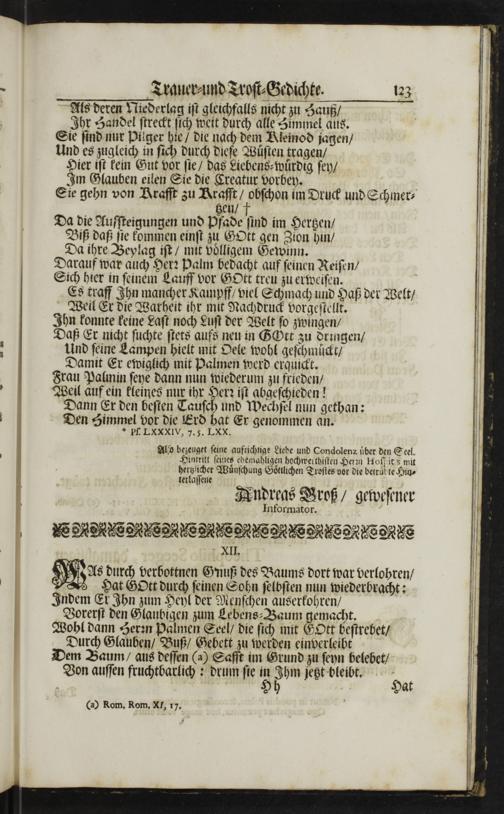 Trauer-und Trost-Gedichte. 123
Als deren Niederlag ist gleichfalls nicht zu Hauß/
Ihr Handel streckt sich weit durch alle Himmel aus.
Sie sind nur Pilger hie/ die nach dem Kleinod jagen/
Und es zugleich in sich durch diese Wüsten tragen/
Hier ist kein Gut vor sie/ das Liebens-würdig sey/
Im Glauben eilen Sie die Creatur vorbey.
Sie gehn von Krafft zu Krafft/ obschon im Druck und Schmer-
tzen/ †
Da die Auffsteigungen und Pfade sind im Hertzen/
Biß daß sie kommen einst zu GOtt gen Zion hin/
Da ihre Beylag ist/ mit völligem Gewinn.
Darauf war auch Herr Palm bedacht auf seinen Reisen/
Sich hier in seinem Lauff vor GOtt treu zu erweisen.
Es traff Ihn mancher Kampff/ viel Schmach und Haß der Welt/
Weil Er die Warheit ihr mit Nachdruck vorgestellt.
Ihn konnte keine Last noch Lust der Welt so zwingen/
Daß Er nicht suchte stets aufs neu in GOtt zu dringen/
Und seine Lampen hielt mit Oele wohl geschmückt/
Damit Er ewiglich mit Palmen werd erquickt.
Frau Palmin seye dann nun wiederum zu frieden/
Weil auf ein kleines nur ihr Herr ist abgeschieden!
Dann Er den besten Tausch und Wechsel nun gethan:
Den Himmel vor die Erd hat Er genommen an.
* Ps. LXXXIV, 7. 5. LXX.
Also bezeuget seine aufrichtige Liebe und Condolenz über den Seel.
Hintritt seines ehemahligen hochwerthisten Herrn Hospitis mit
hertzlicher Wünschung Göttlichen Trostes vor die betrübte Hin-
terlassene
Andreas Groß/ gewesener
Informator.
XII.
WAs durch verbottnen Gnuß des Baums dort war verlohren/
Hat GOtt durch seinen Sohn selbsten nun wiederbracht:
Indem Er Ihn zum Heyl der Menschen auserkohren/
Vorerst den Glaubigen zum Lebens-Baum gemacht.
Wohl dann Herrn Palmen Seel/ die sich mit GOtt bestrebet/
Durch Glauben/ Buß/ Gebett zu werden einverleibt
Dem Baum/ aus dessen (a) Safft im Grund zu seyn belebet/
Von aussen fruchtbarlich: drum sie in Ihm jetzt bleibt.
Hh Hat
(a) Rom. Rom. XI, 17.